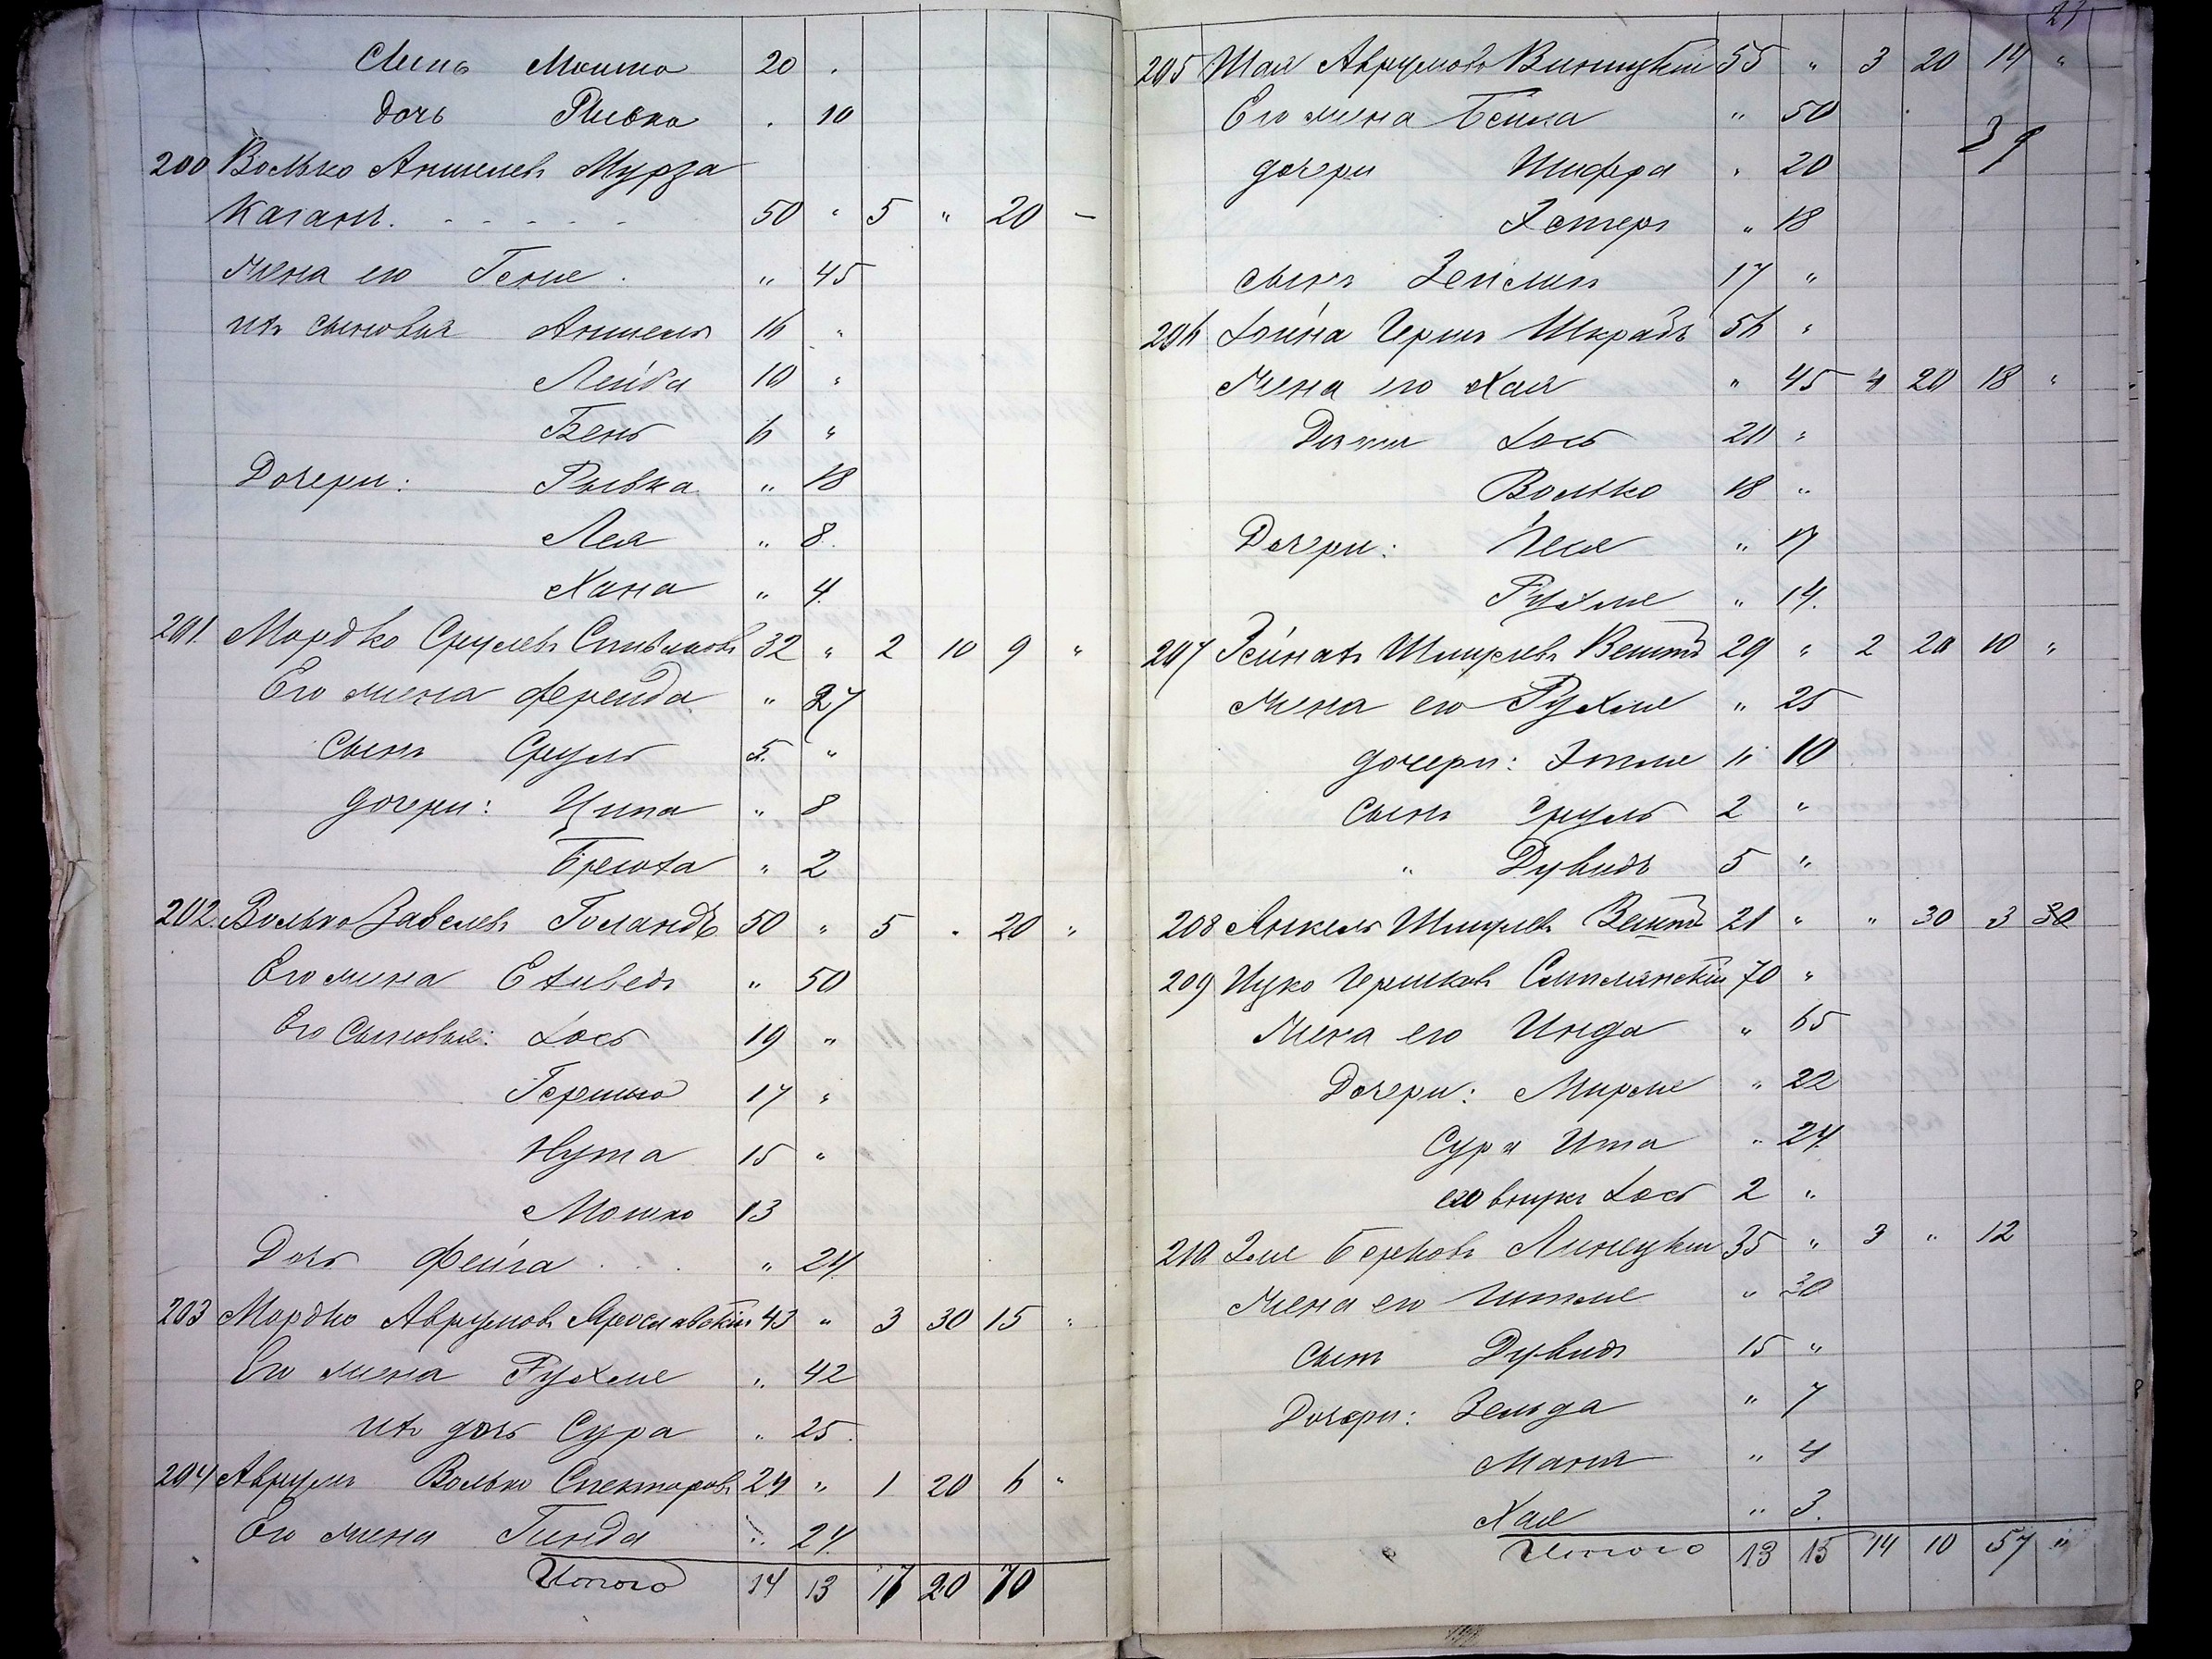 Сынъ Мошко 20 "
Дочь Рывка " 10
200 Волько Аншелевъ Мурза
Каганъ 50 " 5 " 20 —
Жена его Геня " 45
ихъ сыновья Аншель 16 "
Лейба 10 "
Бень 6 "
Дочери: Рывка " 18
Лея " 8
Хана " 4
201. Мордко Срулевъ 32 " 2 10 9 "
Его жена Фрейда " 27
Сынъ Сруль 5 "
дочери: Ципа " 8
" 2
202. Волько Завелевъ Голандъ 50 " 5 " 20 "
Его жена " 50
Его Сыновья: Іось 19 "
Гершко 17 "
Нута 15 "
Мошко 13
Дочь Фейга " 24
203 Мордко Аврумовъ Ярославскій 43 " 3 30 15 "
Его жена Рухля " 42
ихъ дочь Сура " 25
204 Аврумъ Волько Спекторовъ 24 " 1 20 6 "
Его жена Гинда " 24
Итого 14 13 17 20 70
27
205 Шая Аврумовъ Виницкій 55 " 3 20 14 "
Его жена Бейла " 50
39
дочери Шифра " 20
Эстеръ " 18
сынъ Зейликъ 17 "
206 Іойна Герш. Шкрабъ 56 "
Жена его Хая " 45 4 20 18 "
Дети Іось 20 "
Волько 18 "
Дочери: Песя " 17
Рухля " 14
207 Шмулевъ 29 " 2 20 10 "
Жена его Рухля " 25
дочери: Этля " 10
Сынъ Сруль 2 "
" Дувидъ 5 "
208 Янкель Шмулевъ 21 " " 30 3 30
209 Ицко Гершковъ Смилянскій 70 "
Жена его Инда " 65
Дочери: Мирля " 22
Сура Ита " 24
его внукъ Іось 2 "
210 Эля Берковъ Линецкій 35 " 3 " 12
Жена его Гитля " 30
Сынъ Дувидъ 15 "
Дочери: Зельда " 7
Маня " 4
Хая " 3
Итого 13 15 14 10 57 "